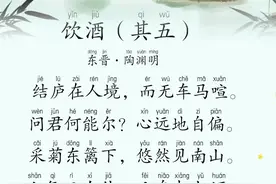 yǐn jiǔ qí wǔ
饮酒（其五）
dōng jìn táo yuān míng
东晋·陶渊明
jié lú zài rén jìng ér wú chē mǎ xuān
结庐在人境，而无车马喧。
wèn jūn hé néng ěr xīn yuǎn dì zì piān
问君何能尔？心远地自偏。
cǎi jú dōng lí xià yōu rán jiàn nán shān
采菊东篱下，悠然见南山。
shān qì rì xī jiā fēi niǎo xiāng yǔ huán